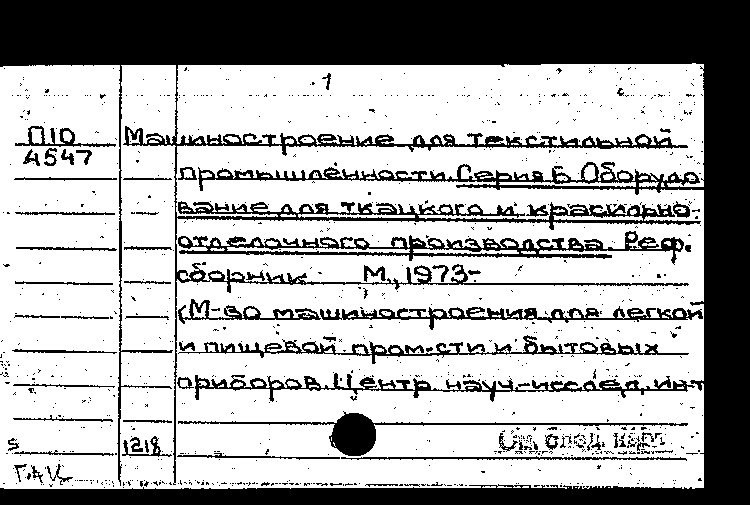 1
П10 Машиностроение для текстильной
4547
промышленности. Серия Б Оборудо
вание для ткацкого и красильно-
отделочного производства. Реф.
сборник. М., 1973-
(М-во машиностроения для легкой
и пищевой пром-сти и бытовых
приборов. Центр науч.-исслед. ин-т
s 1218 См. след. карт